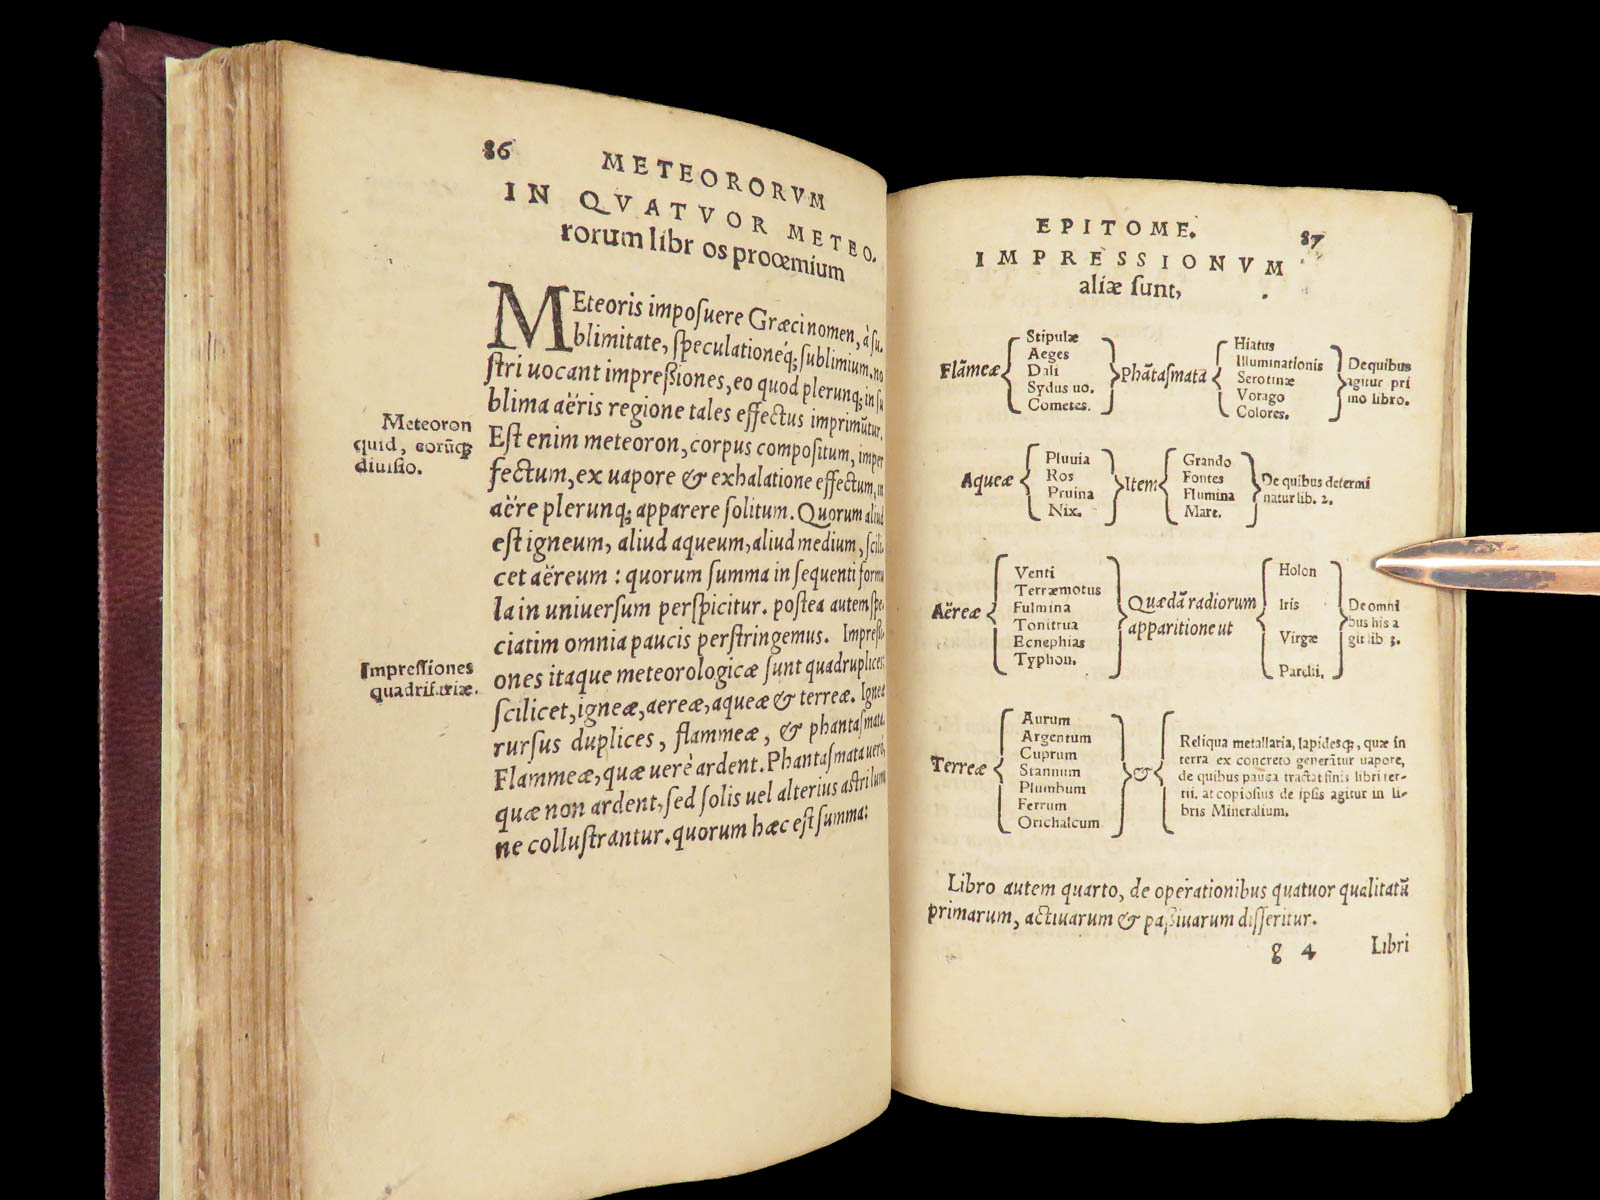 86
METEORORVM
IN QVATVOR METEO.
rorum libros proœmium
MEteoris imposuere Græci nomen, à su-
blimitate, speculationeq́; sublimium. no
stri uocant impreßiones, eo quod plerunq; in su
blima aëris regione tales effectus imprimũtur.
Est enim meteoron, corpus compositum, imper
fectum, ex uapore & exhalatione effectum, in
aëre plerunq; apparere solitum. Quorum aliud
est igneum, aliud aqueum, aliud medium, scili
cet aëreum : quorum summa in sequenti formu
la in uniuersum perspicitur. postea autem spe-
ciatim omnia paucis perstringemus. Impreßi-
ones itaque meteorologicæ sunt quadruplices,
scilicet, igneæ, aereæ, aqueæ & terreæ. Igneæ
rursus duplices, flammeæ, & phantasmata.
Flammeæ, quæ uerè ardent. Phantasmata uerò,
quæ non ardent, sed solis uel alterius astri lumi
ne collustrantur. quorum hæc est summa:
Meteoron
quid, eorũq;
diuisio.
Impressiones
quadrifariæ.
EPITOME.
87
IMPRESSIONVM
aliæ sunt,
Flãmeæ
Stipulæ
Aeges
Dali
Sydus uo.
Cometes.
Phãtasmata
Hiatus
Illuminationis
Serotinæ
Vorago
Colores.
De quibus
agitur pri
mo libro.
Aqueæ
Pluuia
Ros
Pruina
Nix.
Item
Grando
Fontes
Flumina
Mare.
De quibus determi
natur lib. 2.
Aëreæ
Venti
Terræmotus
Fulmina
Tonitrua
Ecnephias
Typhon.
Quædã radiorum
apparitione ut
Holon
Iris
Virgæ
Parelii.
De omni
bus his a
git lib 3.
Terreæ
Aurum
Argentum
Cuprum
Stannum
Plumbum
Ferrum
Orichalcum
&
Reliqua metallaria, lapidesq;, quæ in
terra ex concreto generãtur uapore,
de quibus pauca tractat finis libri ter-
tii, at copiosius de ipsis agitur in li-
bris Mineralium.
Libro autem quarto, de operationibus quatuor qualitatũ
primarum, actiuarum & paßiuarum disseritur.
g 4
Libri